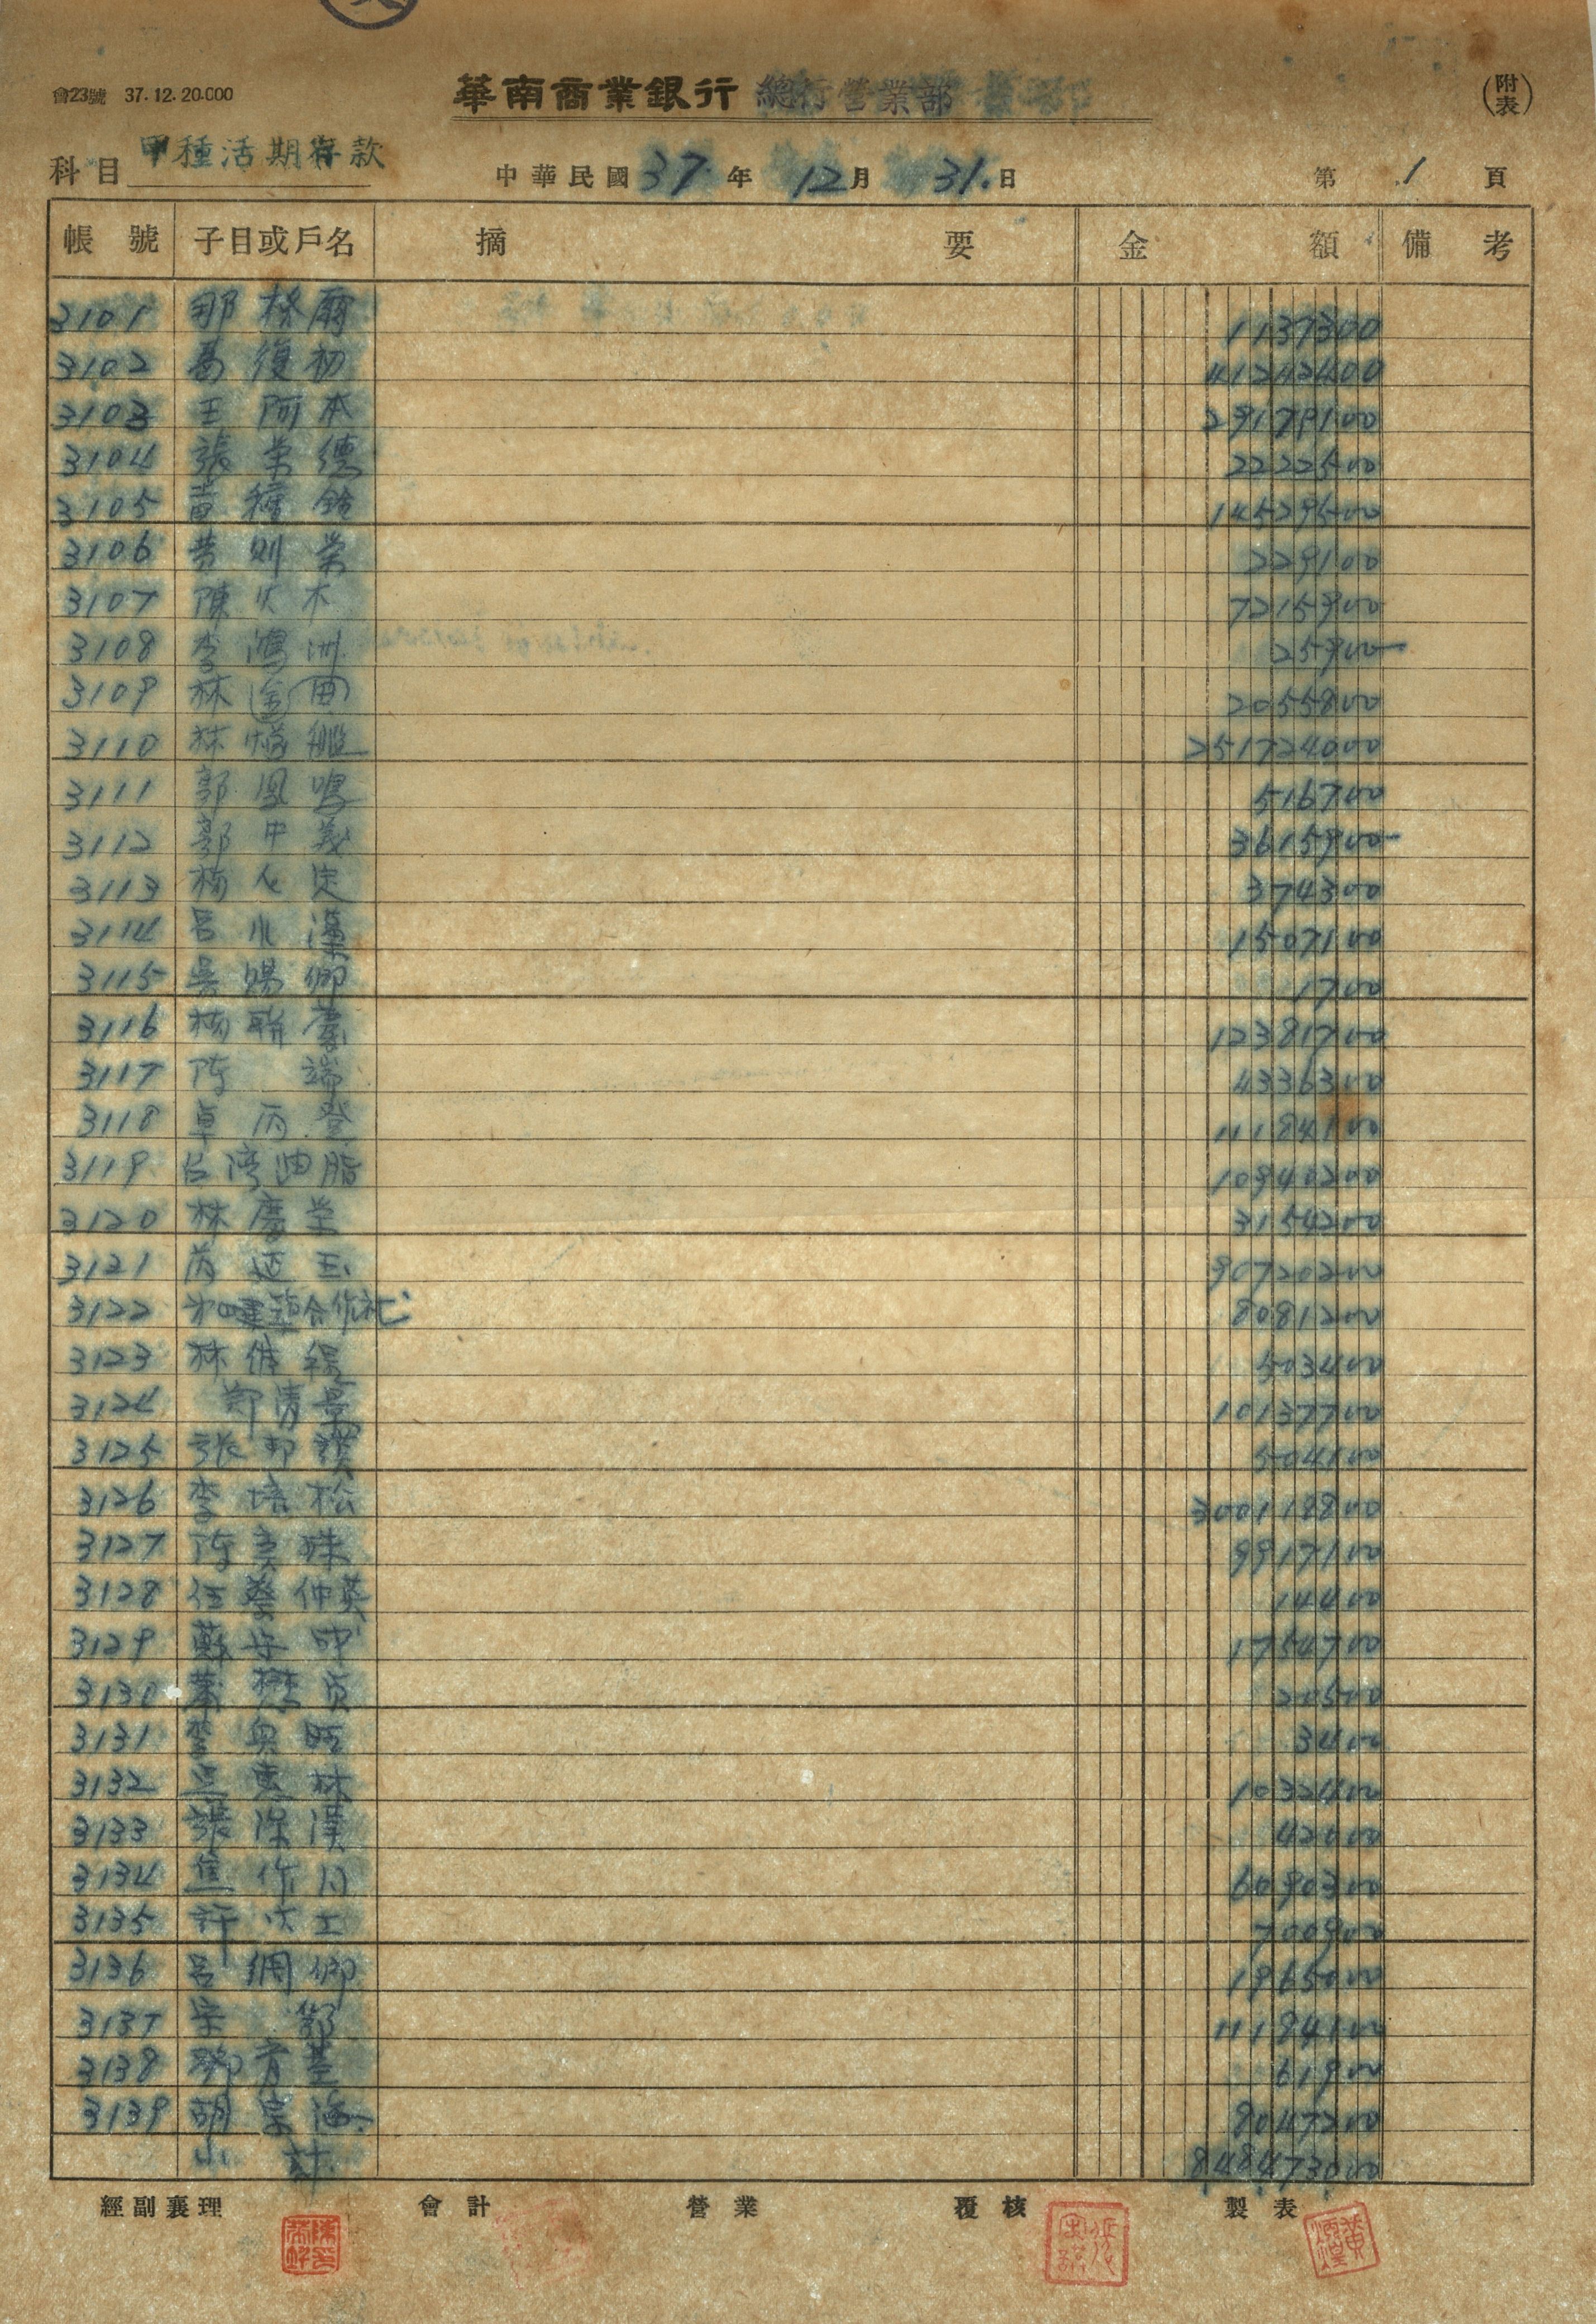 會23號 37.12.20.000
華南商業銀行 總行營業部
(附表)
科目 甲種活期存款 中華民國 37 年 12 月 31 日 第 1 頁
帳號 子目或戶名 摘要 金額 備考
3101 那格爾 1137300
3102 葛復初 41242400
3103 王阿本 29179100
3104 張荣德 2222500
3105 黃種鈴 14529500
3106 黃則荣 229100
3107 陳火木 7215900
3108 李鴻洲 25900
3109 林 2055800
3110 林 251724000
3111 郭鳳鳴 516700
3112 郭中義 3615900
3113 楊人定 374300
3114 呂水濱 1507100
3115 吳錫卿 1700
3116 楊聯慶 12381700
3117 陈端 4336300
3118 卓丙登 11184100
3119 台湾油脂 10940200
3120 林慶荣 3154200
3121 芮延玉 90720200
3122 建築合作社 8081200
3123 林 503400
3124 鄭清景 10137700
3125 張邦 504100
3126 李培松 300118800
3127 陈美珠 9917100
3128 伍蔡仲英 14400
3129 蘇安 1754700
3130 葉 貞 20500
3131 李奥旺 3400
3132 吳惠林 1032400
3133 張深漢 42000
3134 焦作月 6090300
3135 許火工 700900
3136 呂網卿 1965000
3137 宋鄧 11184100
3138 鄧 61900
3139 胡宗海 8047200
小計 848473000
經副襄理 會計 營業 覆核 製表
黃炳煌